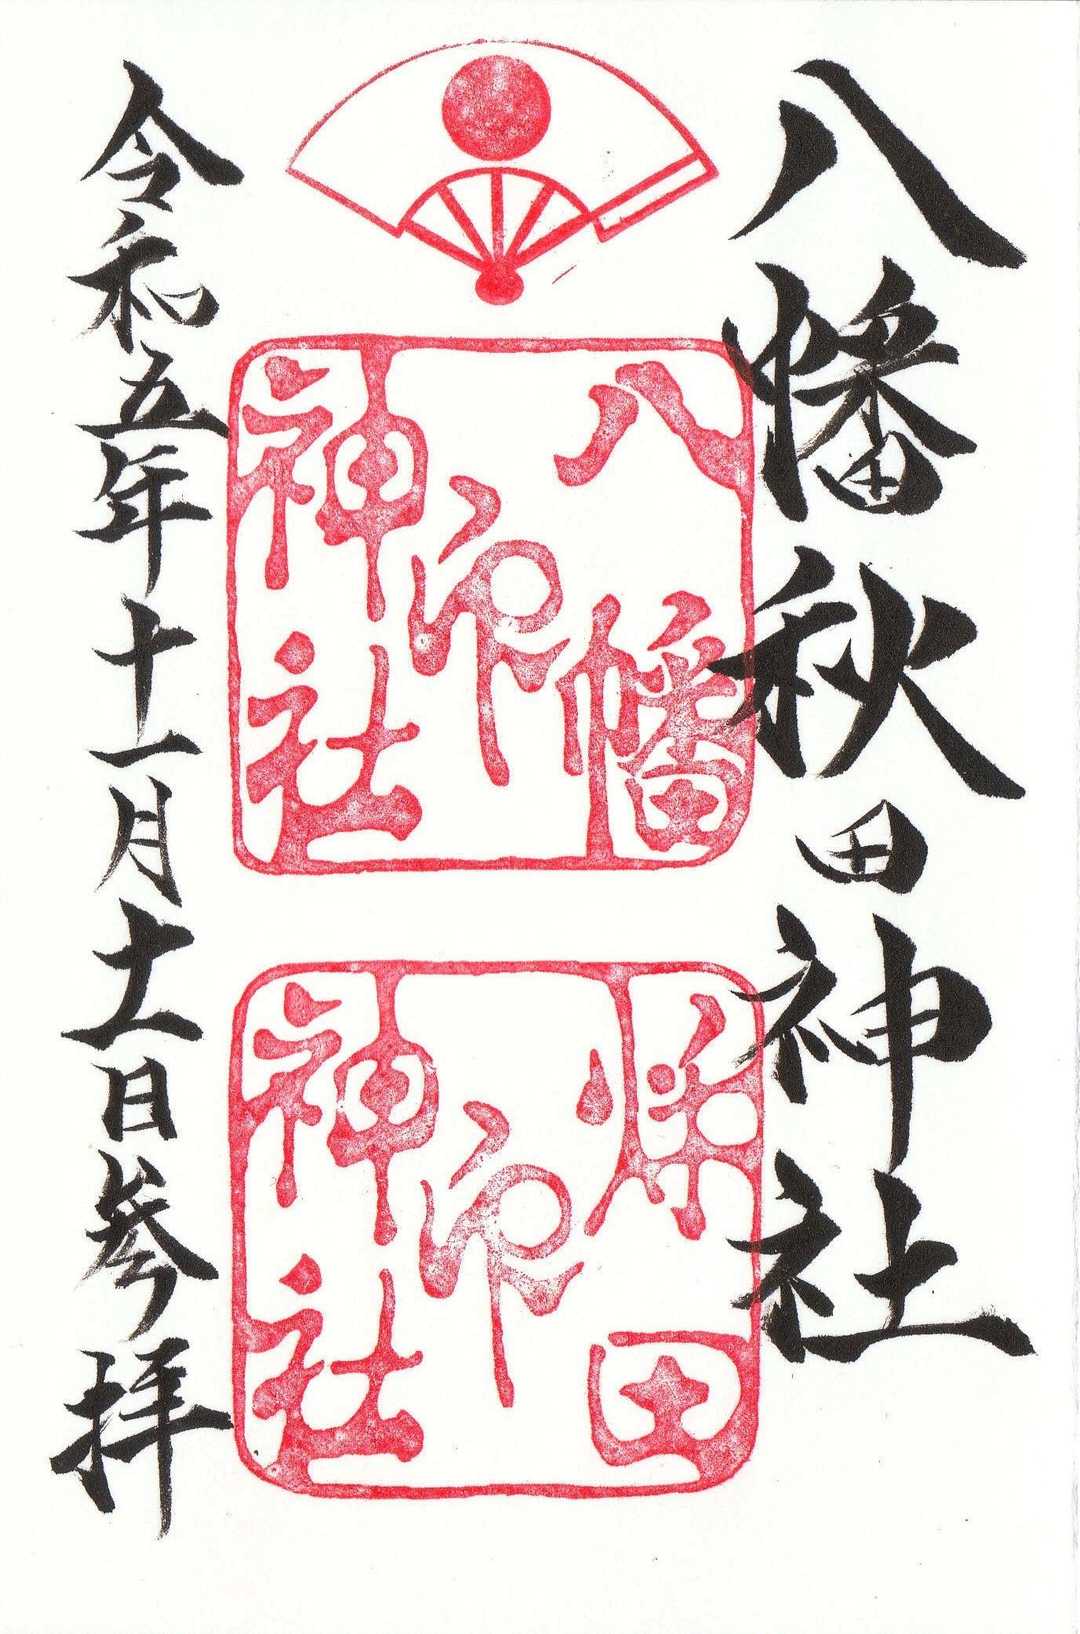 八幡秋田神社
八幡
印
神社
秋田
印
神社
令和五年十一月十一日参拝